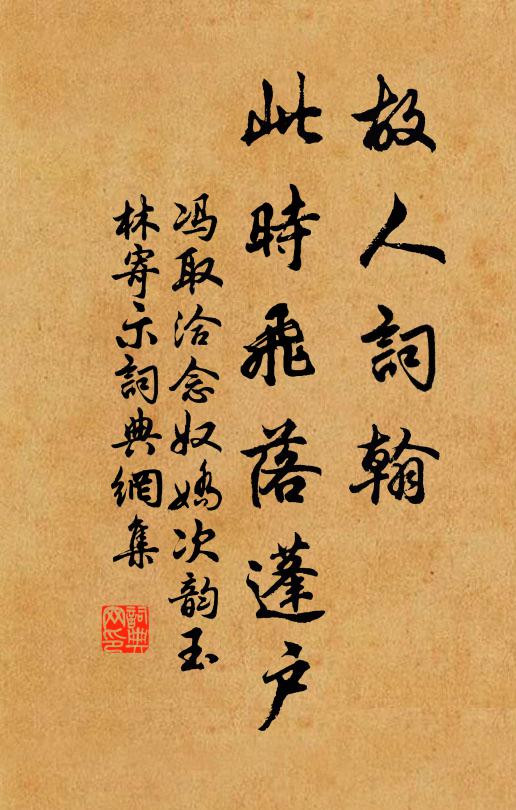 故人詞翰
此時飛落蓬户
冯取洽念奴嬌次韵玉
林寄示詞典網集
詞典
网印